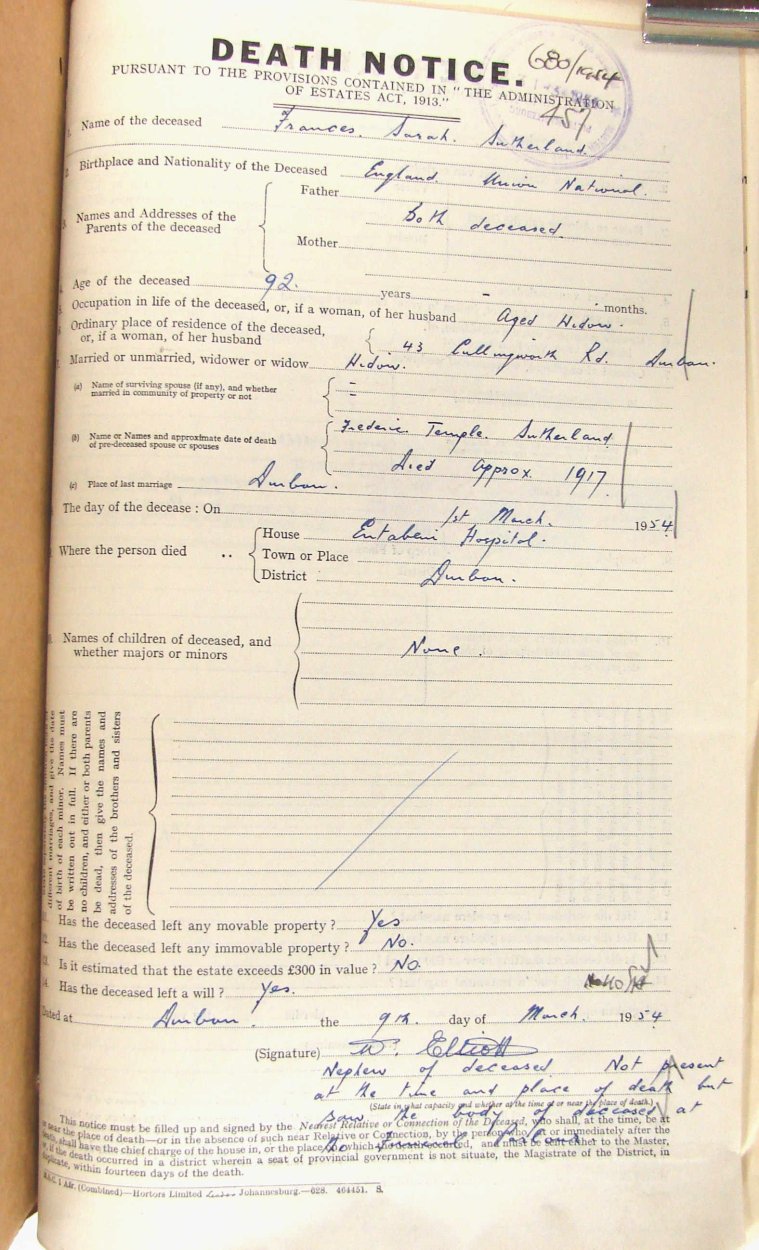 DEATH NOTICE.
680/1954
457
PURSUANT TO THE PROVISIONS CONTAINED IN "THE ADMINISTRATION
OF ESTATES ACT, 1913."
1. Name of the deceased Frances. Sarah. Sutherland.
2. Birthplace and Nationality of the Deceased England. Union National.
3. Names and Addresses of the Parents of the deceased
Father
Both deceased.
Mother
Age of the deceased 92. years - months.
Occupation in life of the deceased, or, if a woman, of her husband Aged Widow.
Ordinary place of residence of the deceased, or, if a woman, of her husband 43 Cullingworth Rd. Durban.
7. Married or unmarried, widower or widow Widow.
(a) Name of surviving spouse (if any), and whether married in community of property or not
(b) Name or Names and approximate date of death of pre-deceased spouse or spouses Frederic. Temple. Sutherland.
Died approx. 1917.
(c) Place of last marriage Durban.
The day of the decease : On 1st March. 1954.
Where the person died .. House Entabeni Hospital.
Town or Place
District Durban.
Names of children of deceased, and whether majors or minors None.
different marriages, and give the date
of birth of each minor. Names must
be written out in full. If there are
no children, and either or both parents
be dead, then give the names and
addresses of the brothers and sisters
of the deceased.
11. Has the deceased left any movable property ? Yes
12. Has the deceased left any immovable property ? No.
13. Is it estimated that the estate exceeds £300 in value ? No.
14. Has the deceased left a will ? Yes.
Dated at Durban. the 9th. day of March. 1954
(Signature) W. Elliott
Nephew of deceased. Not present
at the time and place of death but
(State in what capacity and whether at the time at or near the place of death.)
saw the body of deceased at
the Funeral Parlour
This notice must be filled up and signed by the Nearest Relative or Connection of the Deceased, who shall, at the time, be at
or near the place of death—or in the absence of such near Relative or Connection, by the person who at or immediately after the
death shall have the chief charge of the house in, or the place in which the death occurred, and must be sent either to the Master,
or, if the death occurred in a district wherein a seat of provincial government is not situate, the Magistrate of the District, in
duplicate, within fourteen days of the death.
M.S.C. 1 Afr. (Combined)—Hortors Limited Johannesburg.—628. 464451. S.